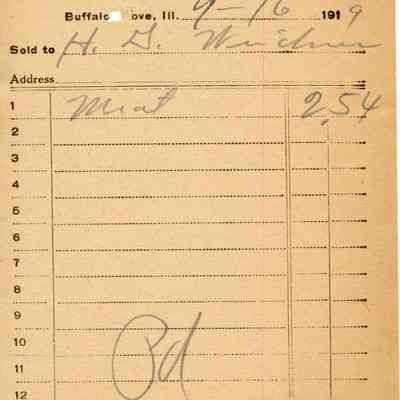 Buffalo ove, Ill. 9-16 1919
Sold to H. G. Weidner
Address
1 Meat 2.54
2
3
4
5
6
7
8
9
10
11
12
Pd